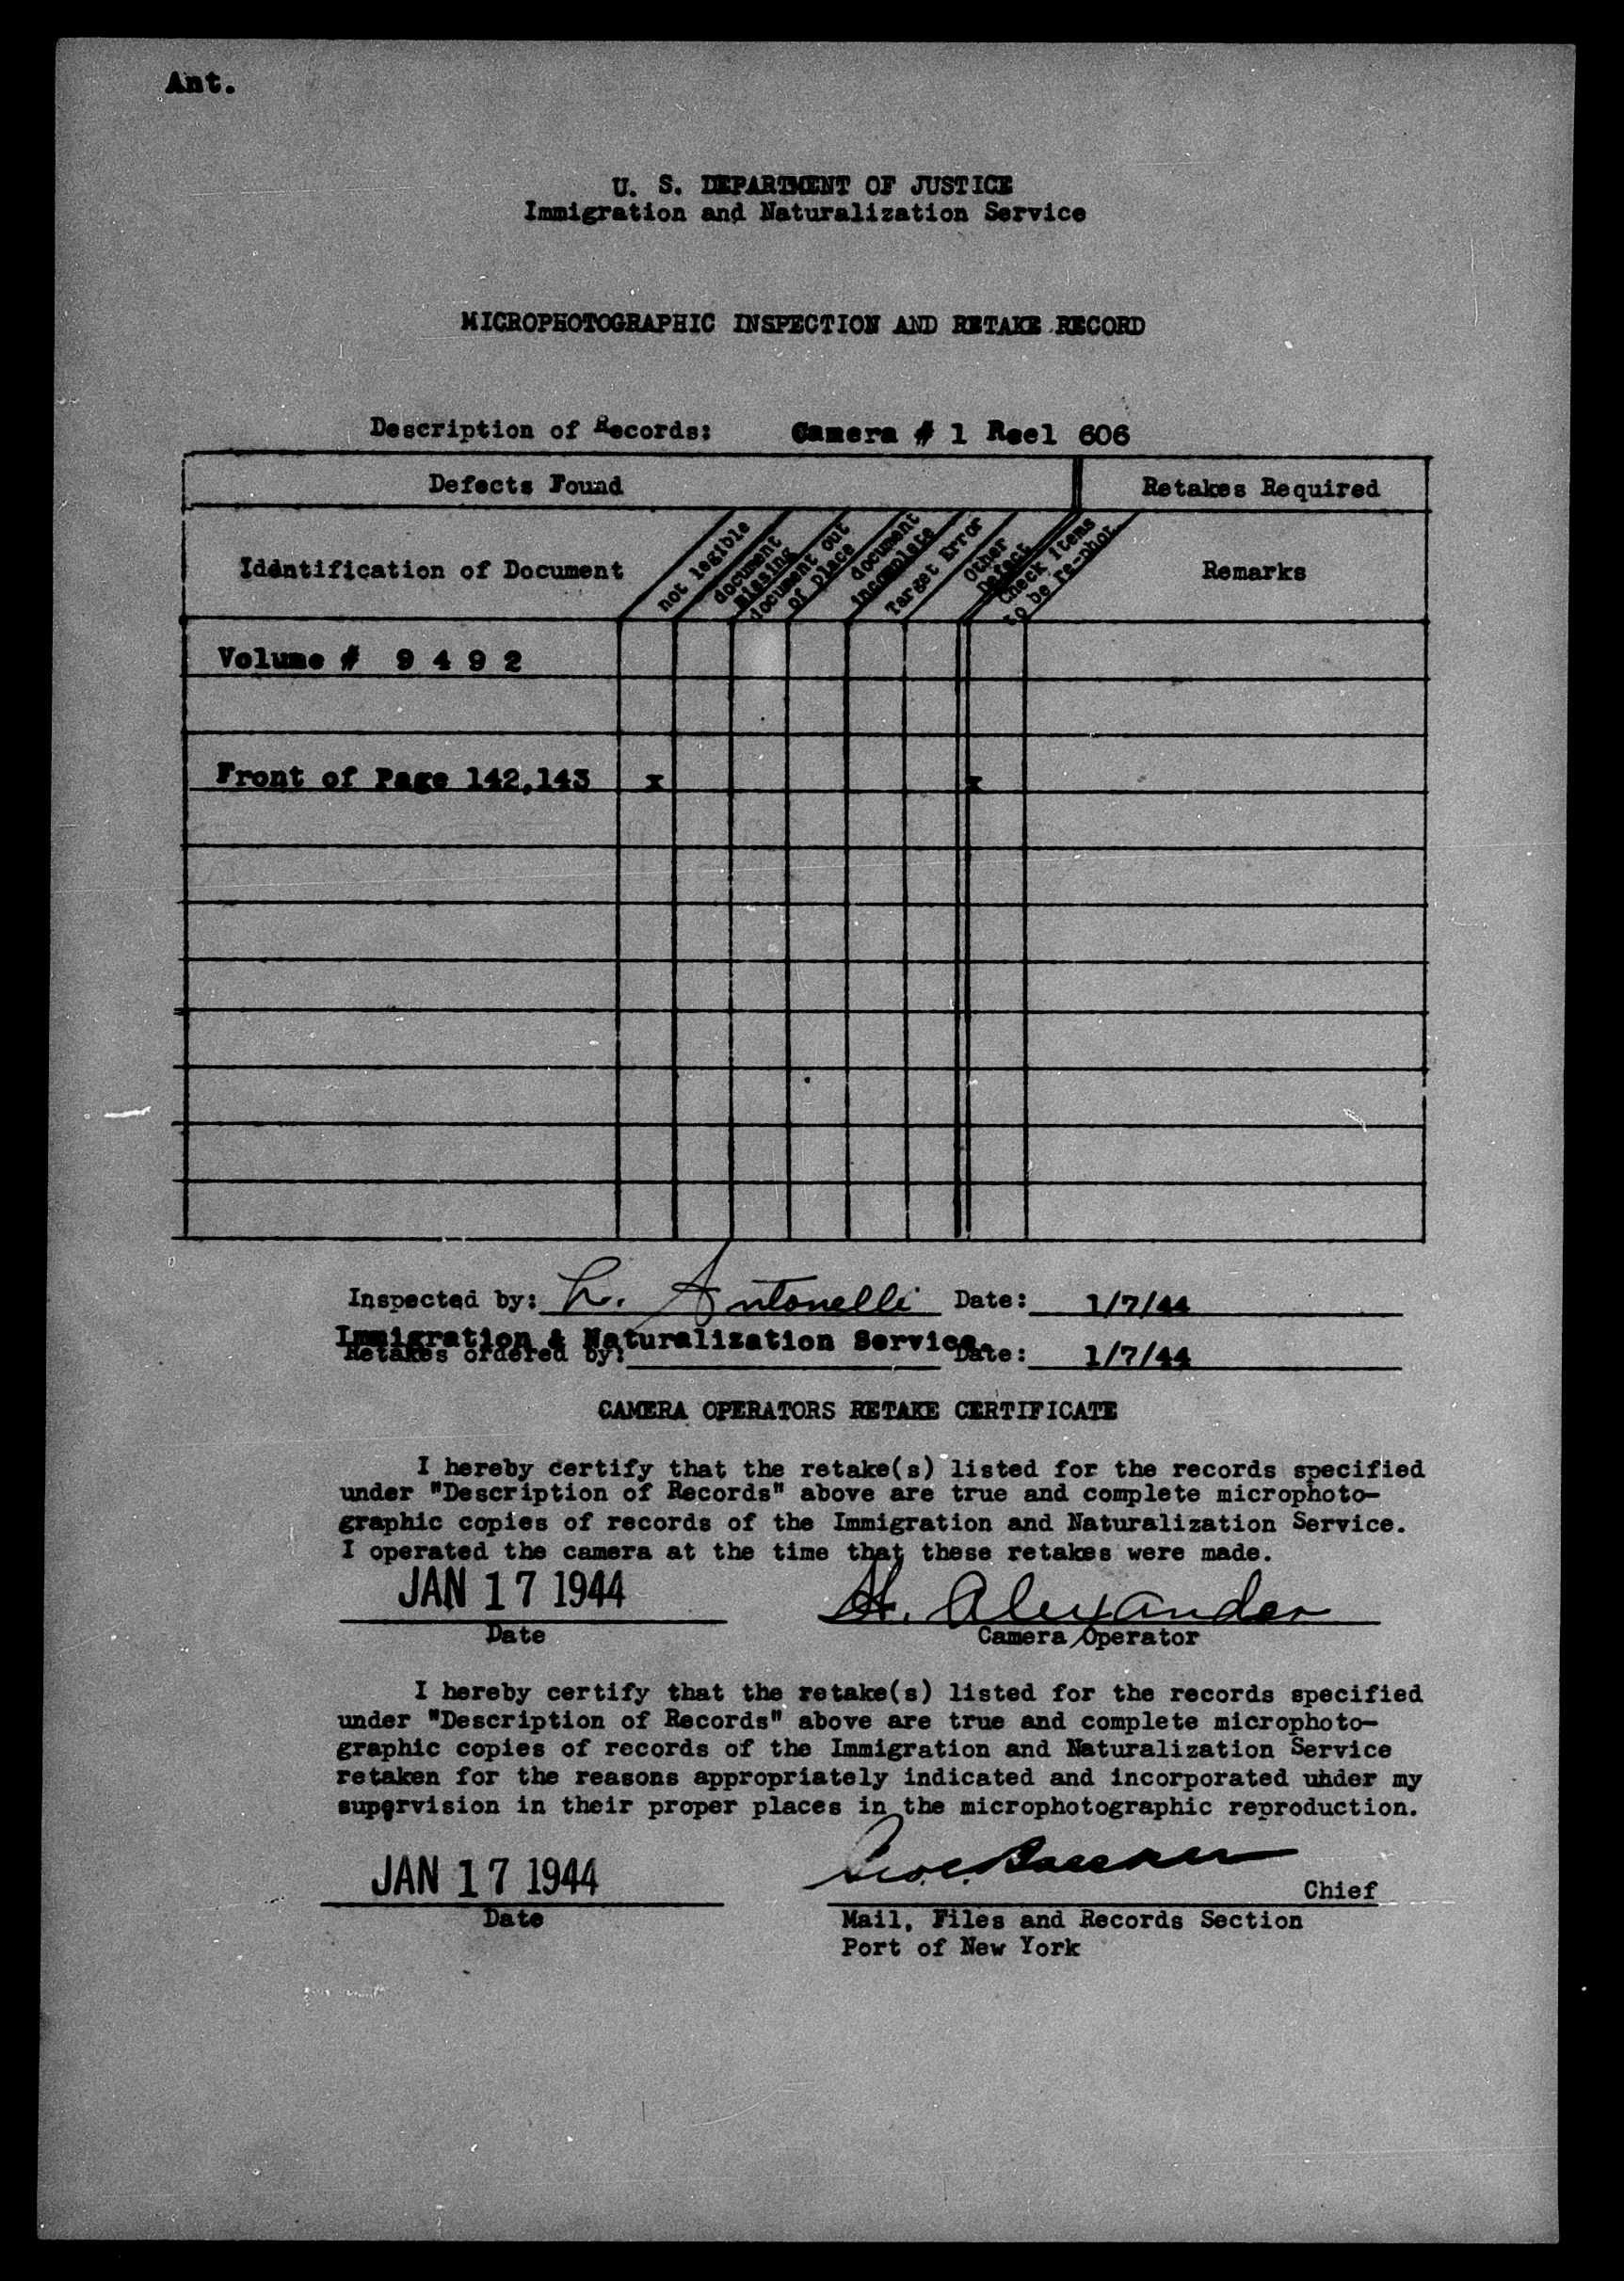 Ant.
U. S. DEPARTMENT OF JUSTICE
Immigration and Naturalization Service
MICROPHOTOGRAPHIC INSPECTION AND RETAKE RECORD
Description of Records: Camera # 1 Reel 606
Defects Found Retakes Required
Identification of Document
not legible
document
missing
document out
of place
document
incomplete
Target Error
Other
Defect
Check items
to be re-phot.
Remarks
Volume # 9 4 9 2
Front of Page 142,143 x x
Inspected by: L. Antonelli Date: 1/7/44
Immigration & Naturalization Service.
Retakes ordered by: Date: 1/7/44
CAMERA OPERATORS RETAKE CERTIFICATE
I hereby certify that the retake(s) listed for the records specified
under "Description of Records" above are true and complete microphoto-
graphic copies of records of the Immigration and Naturalization Service.
I operated the camera at the time that these retakes were made.
JAN 17 1944 H. Alexander
Date Camera Operator
I hereby certify that the retake(s) listed for the records specified
under "Description of Records" above are true and complete microphoto-
graphic copies of records of the Immigration and Naturalization Service
retaken for the reasons appropriately indicated and incorporated under my
supervision in their proper places in the microphotographic reproduction.
JAN 17 1944
Chief
Date Mail, Files and Records Section
Port of New York